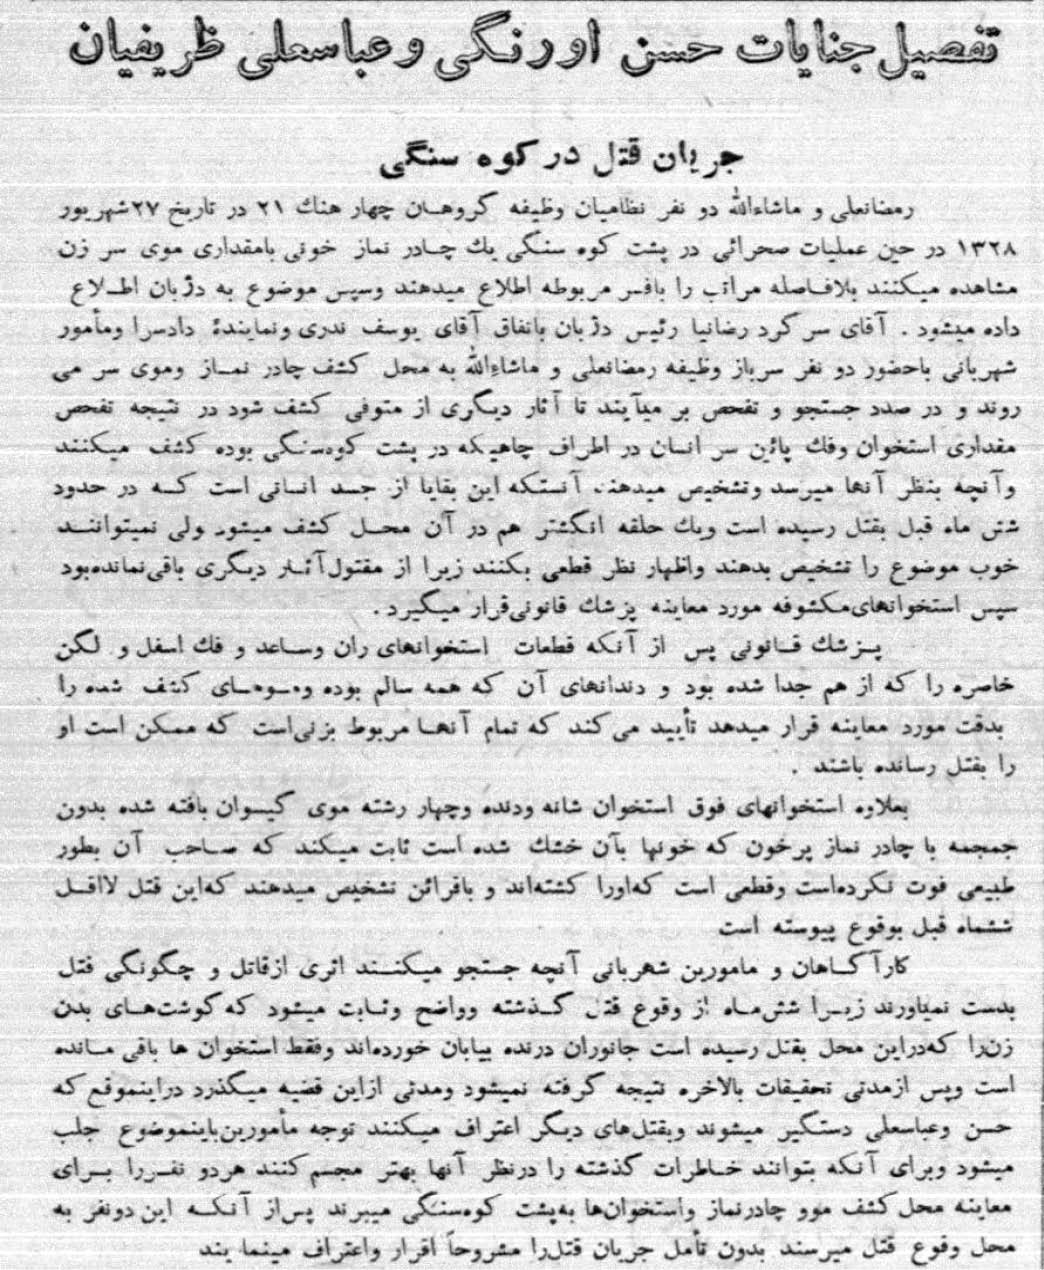 تفصیل جنایات حسن اورنگی و عباسعلی ظریفیان
جریان قتل در کوه سنگی
رمضانعلی و ماشاءالله دو نفر نظامیان وظیفه گروهان چهار هنك ۲۱ در تاریخ ۲۷شهریور
۱۳۲۸ در حین عملیات صحرائی در پشت کوه سنگی یك چادر نماز خونی بامقداری موی سر زن
مشاهده میکنند بلافاصله مراتب را بافسر مربوطه اطلاع میدهند وسپس موضوع به دژبان اطلاع
داده میشود . آقای سرگرد رضانیا رئیس دژبان باتفاق آقای یوسف ندری ونمایندۀ دادسرا ومأمور
شهربانی باحضور دو نفر سرباز وظیفه رمضانعلی و ماشاءالله به محل کشف چادر نماز وموی سر می
روند و در صدد جستجو و تفحص بر میآیند تا آثار دیگری از متوفی کشف شود در نتیجه تفحص
مقداری استخوان وفك پائین سر انسان در اطراف چاهیکه در پشت کوهسنگی بوده کشف میکنند
وآنچه بنظر آنها میرسد وتشخیص میدهند آنستکه این بقایا از جسد انسانی است که در حدود
شش ماه قبل بقتل رسیده است ویك حلقه انگشتر هم در آن محل کشف میشود ولی نمیتوانند
خوب موضوع را تشخیص بدهند واظهار نظر قطعی بکنند زیرا از مقتول آثار دیگری باقی نمانده بود
سپس استخوانهای مکشوفه مورد معاینه پزشك قانونی قرار میگیرد .
پزشك قانونی پس از آنکه قطعات استخوانهای ران وساعد و فك اسفل و لگن
خاصره را که از هم جدا شده بود و دندانهای آن که همه سالم بوده وموهای کشف شده را
بدقت مورد معاینه قرار میدهد تأیید می کند که تمام آنها مربوط بزنی است که ممکن است او
را بقتل رسانده باشند .
بعلاوه استخوانهای فوق استخوان شانه ودنده وچهار رشته موی گیسوان بافته شده بدون
جمجمه با چادر نماز پرخون که خونها بآن خشك شده است ثابت میکند که صاحب آن بطور
طبیعی فوت نکرده است وقطعی است که اورا کشته اند و باقرائن تشخیص میدهند که این قتل لااقل
ششماه قبل بوقوع پیوسته است
کارآگاهان و مامورین شهربانی آنچه جستجو میکنند اثری ازقاتل و چگونگی قتل
بدست نمیاورند زیرا شش ماه از وقوع قتل گذشته وواضح وثابت میشود که گوشت های بدن
زنرا که دراین محل بقتل رسیده است جانوران درنده بیابان خورده اند وفقط استخوان ها باقی مانده
است وپس ازمدتی تحقیقات بالاخره نتیجه گرفته نمیشود ومدتی ازاین قضیه میگذرد دراینموقع که
حسن وعباسعلی دستگیر میشوند وبقتل های دیگر اعتراف میکنند توجه مأمورین باینموضوع جلب
میشود وبرای آنکه بتوانند خاطرات گذشته را درنظر آنها بهتر مجسم کنند هردو نفررا برای
معاینه محل کشف موو چادرنماز واستخوان ها به پشت کوه سنگی میبرند پس از آنکه این دونفر به
محل وقوع قتل میرسند بدون تأمل جریان قتل را مشروحاً اقرار واعتراف مینما یند